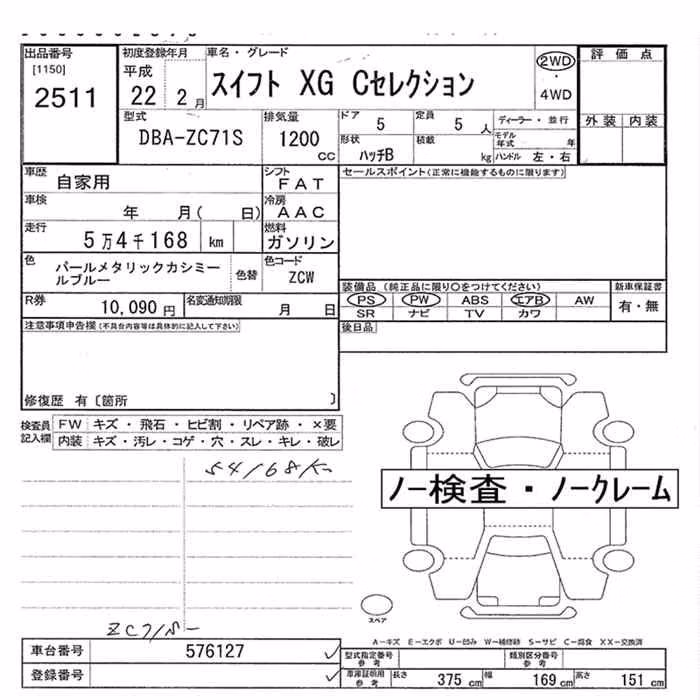 出品番号
[1150]
2511
初度登録年月
平成
22 2月
車名・グレード
スイフト XG Cセレクション
2WD
・
4WD
評価点
外装 内装
型式
DBA-ZC71S
排気量
1200
cc
ドア 5
定員 5人
ディーラー・並行
形状
ハッチB
積載
kg
モデル年式 年
ハンドル 左・右
車歴
自家用
シフト
FAT
セールスポイント(正常に機能するものに限ります)
車検
年 月( 日)
冷房
AAC
走行
5万4千168 km
燃料
ガソリン
色
パールメタリックカシミールブルー
色替
色コード
ZCW
装備品(純正品に限り○をつけてください)
新車保証書
PS PW ABS エアB AW
有・無
SR ナビ TV カワ
R券
10,090円
名変通知期限
月 日
後日品
注意事項申告欄(不具合内容等は具体的に記入して下さい)
修復歴 有〔箇所 〕
検査員記入欄
FW キズ・飛石・ヒビ割・リペア跡・×要
内装 キズ・汚レ・コゲ・穴・スレ・キレ・破レ
54168K
ノー検査・ノークレーム
スペア
ZC71S-
A-キズ E-エクボ U-凹み W-補修跡 S-サビ C-腐食 XX-交換済
車台番号 576127
型式指定番号
参考
類別区分番号
参考
登録番号
車庫証明用
参考
長さ 375 cm 幅 169 cm 高さ 151 cm